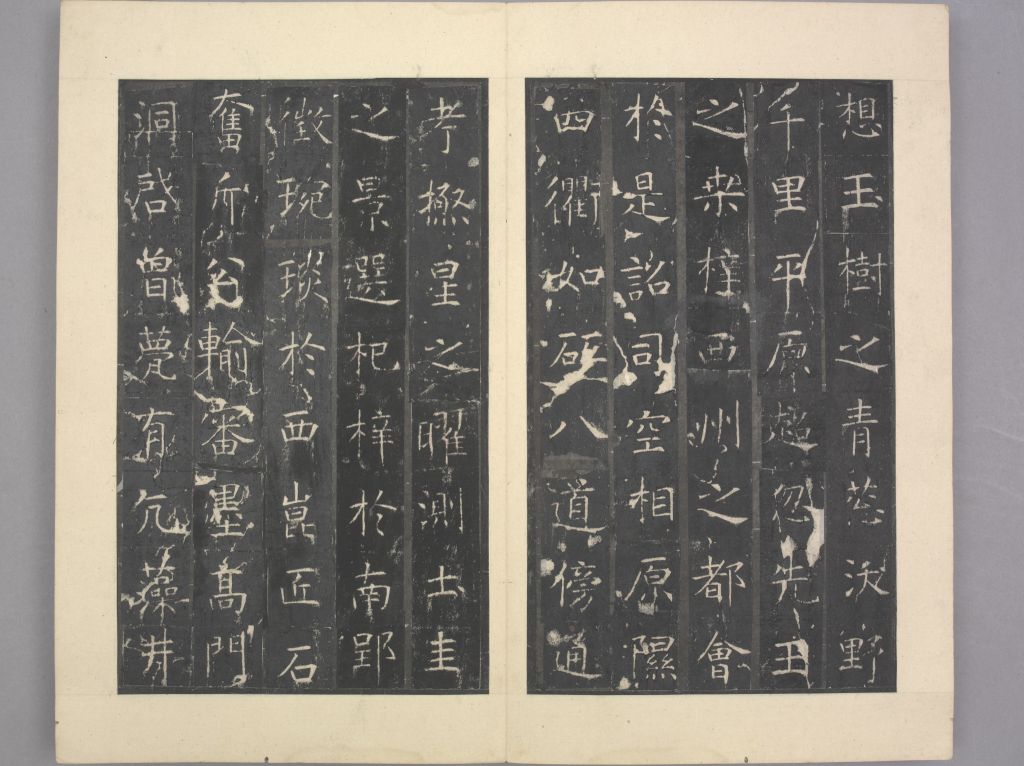 想玉樹之青葱泱野
千里平原超忽先王
之桒梓西州之都會
於是詔司空相原隰
四衢如砥八道傍通
考極星之曜測土圭
之景選杞梓於南郢
徵琬琰於西崑匠石
奮斤公輸審墨髙門
洞啓曾甍有亢藻井